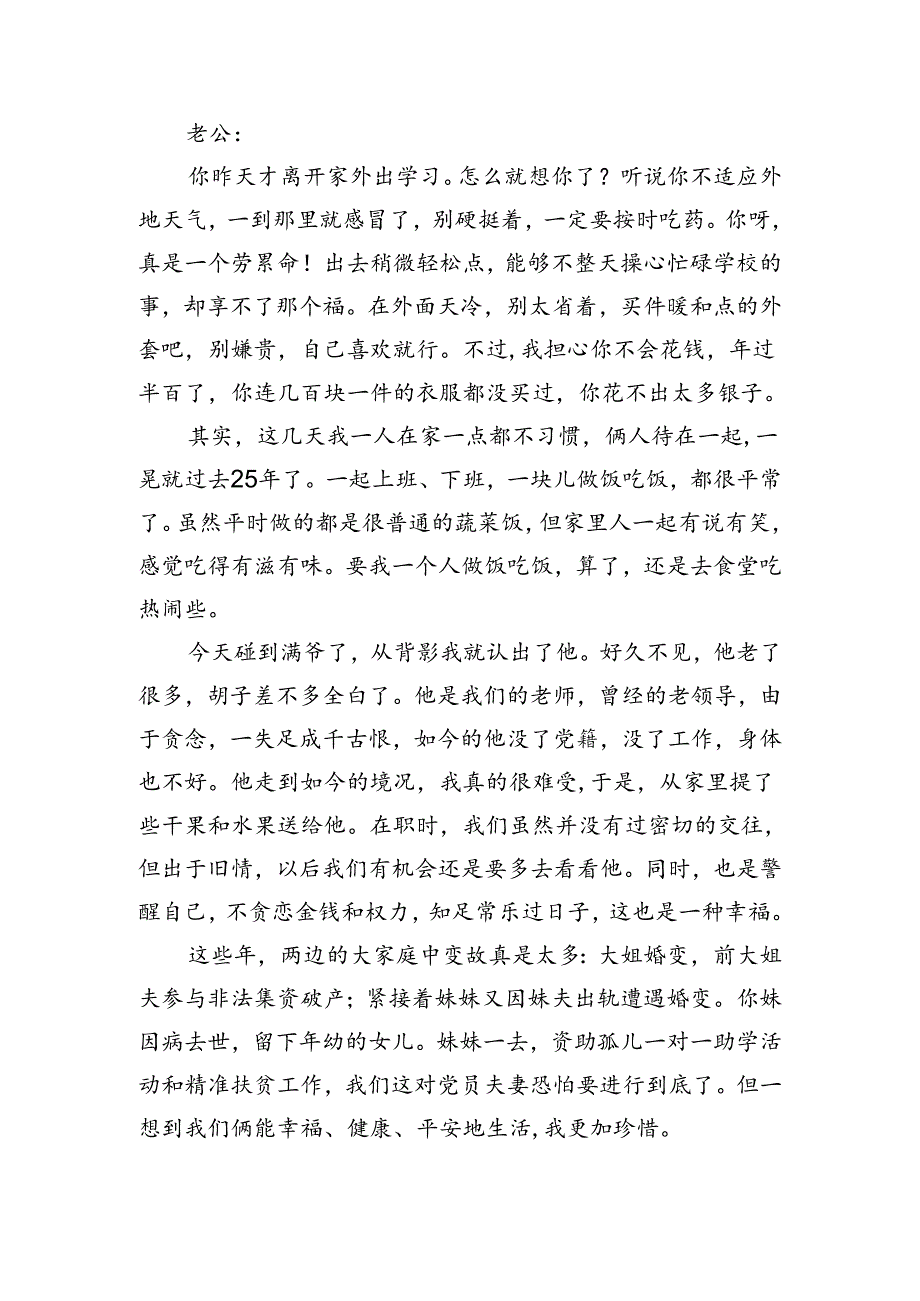 老公：
你昨天才离开家外出学习。怎么就想你了？听说你不适应外
地天气，一到那里就感冒了，别硬挺着，一定要按时吃药。你呀，
真是一个劳累命！出去稍微轻松点，能够不整天操心忙碌学校的
事，却享不了那个福。在外面天冷，别太省着，买件暖和点的外
套吧，别嫌贵，自己喜欢就行。不过,我担心你不会花钱，年过
半百了，你连几百块一件的衣服都没买过，你花不出太多银子。
其实，这几天我一人在家一点都不习惯，俩人待在一起,一
晃就过去25年了。一起上班、下班，一块儿做饭吃饭，都很平常
了。虽然平时做的都是很普通的蔬菜饭，但家里人一起有说有笑，
感觉吃得有滋有味。要我一个人做饭吃饭，算了，还是去食堂吃
热闹些。
今天碰到满爷了，从背影我就认出了他。好久不见，他老了
很多，胡子差不多全白了。他是我们的老师，曾经的老领导，由
于贪念，一失足成千古恨，如今的他没了党籍，没了工作，身体
也不好。他走到如今的境况，我真的很难受,于是，从家里提了
些干果和水果送给他。在职时，我们虽然并没有过密切的交往，
但出于旧情，以后我们有机会还是要多去看看他。同时，也是警
醒自己，不贪恋金钱和权力，知足常乐过日子，这也是一种幸福。
这些年，两边的大家庭中变故真是太多：大姐婚变，前大姐
夫参与非法集资破产；紧接着妹妹又因妹夫出轨遭遇婚变。你妹
因病去世，留下年幼的女儿。妹妹一去，资助孤儿一对一助学活
动和精准扶贫工作，我们这对党员夫妻恐怕要进行到底了。但一
想到我们俩能幸福、健康、平安地生活,我更加珍惜。